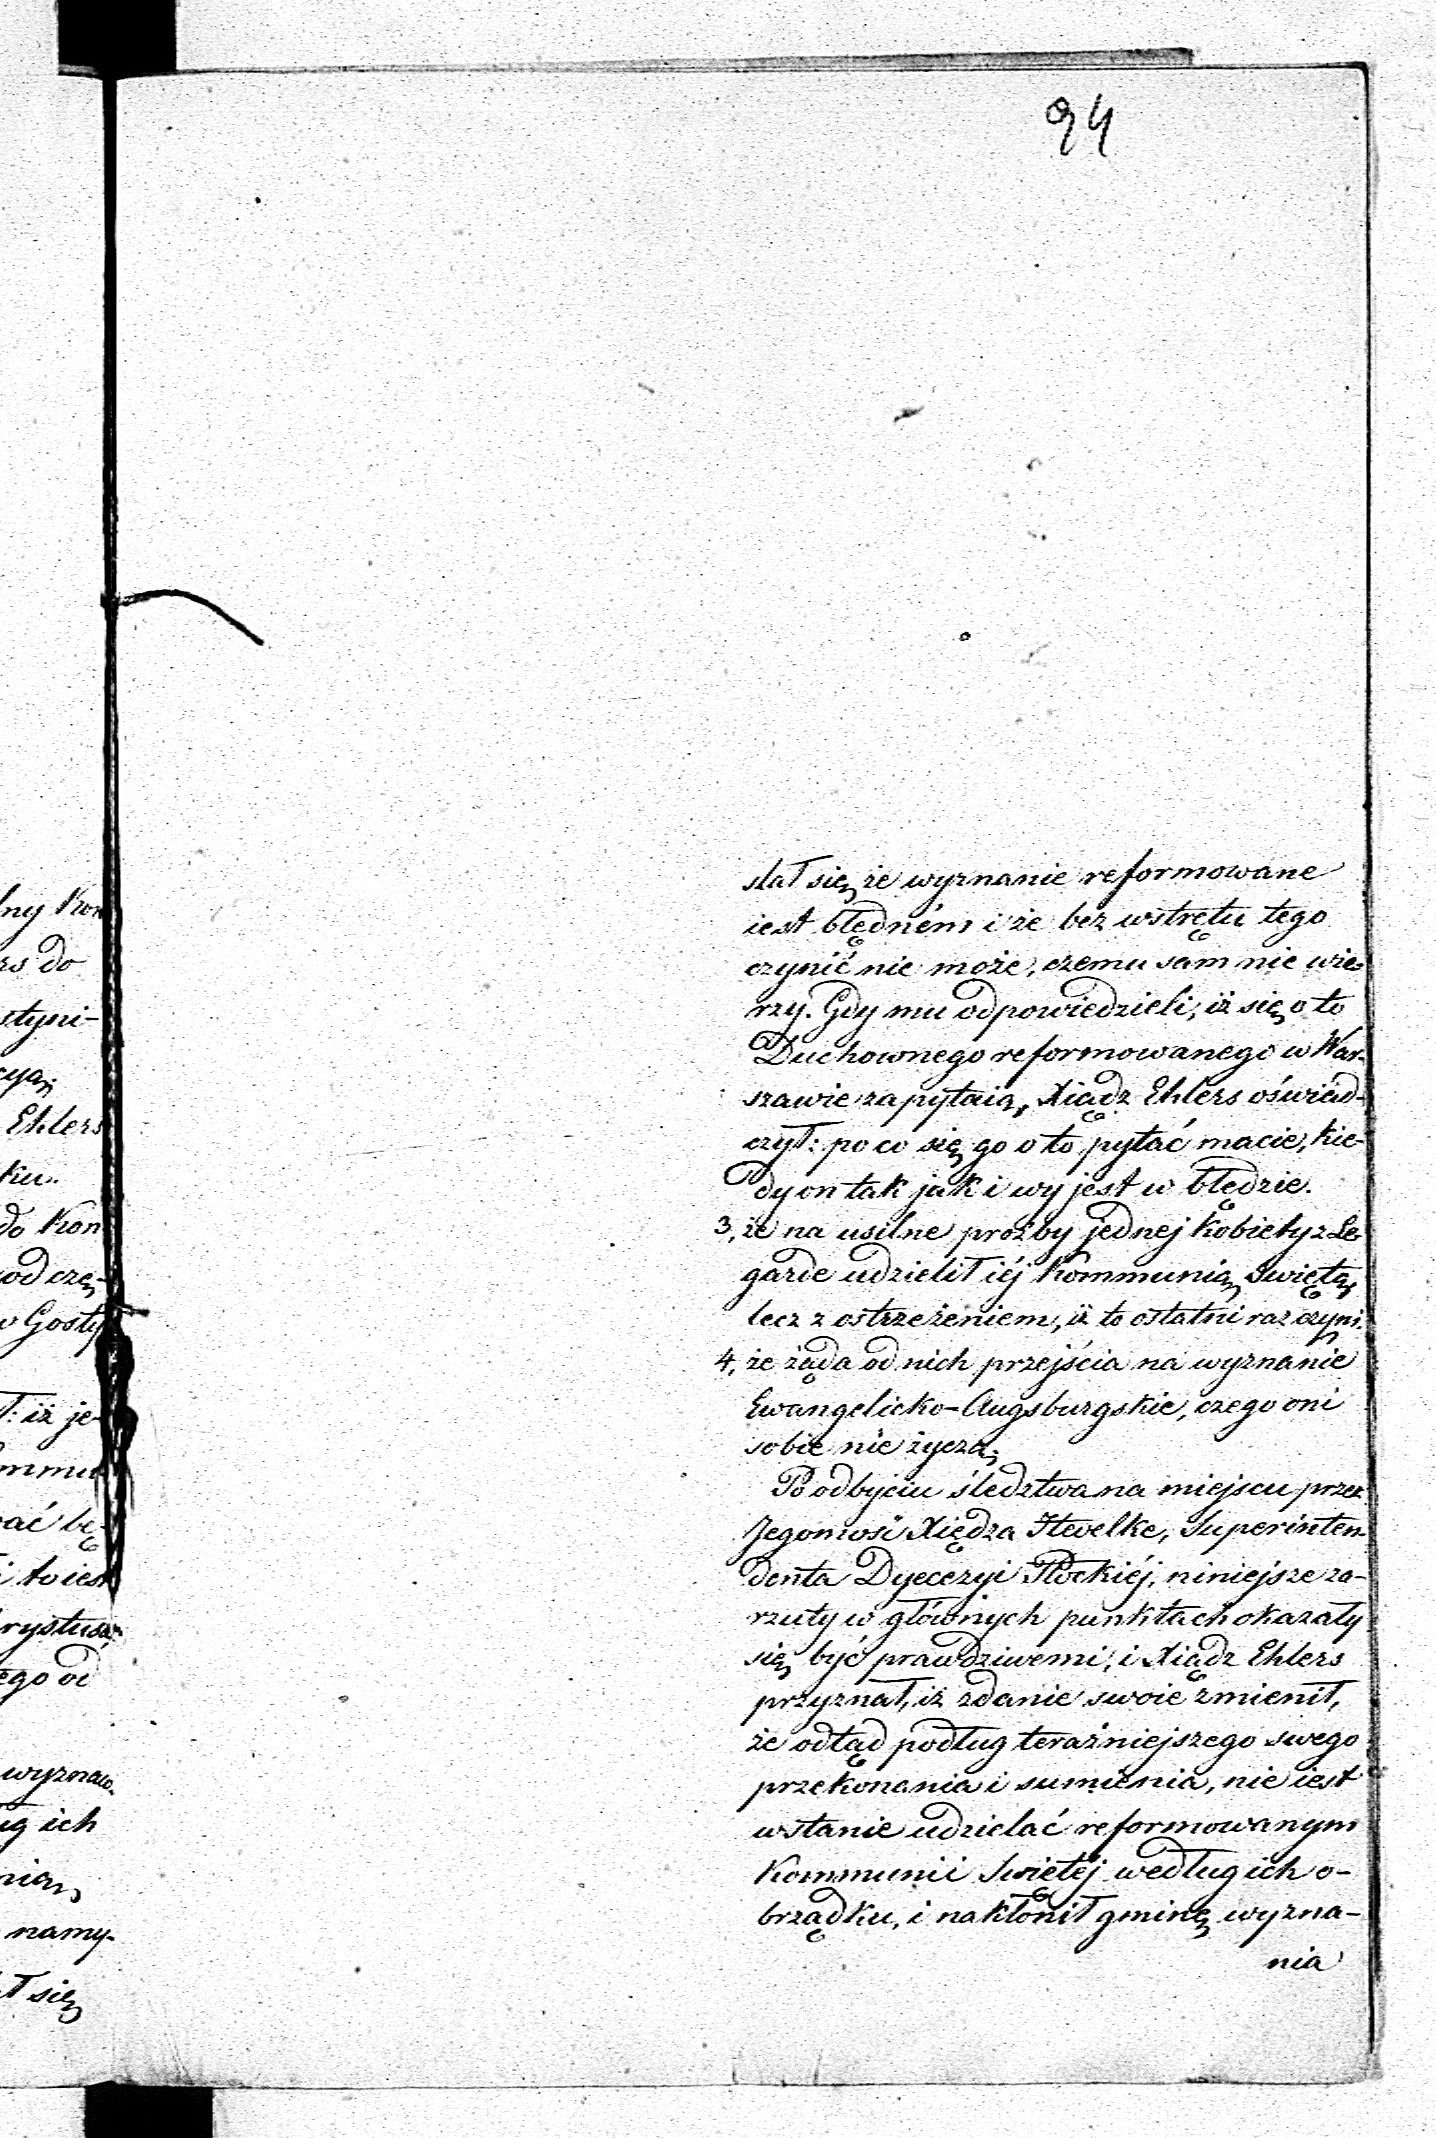 94
lny Kon
rs do
styni-
cyą
Ehlers
ku.
do Kon
od czę-
w Gosty
ł: iż je-
ommu
ać bę-
i to iest
rystusa
ego od
wyznaw
ug ich
nią
namy-
ł się
stał się że wyznanie reformowane
iest błędném i że bez wstrętu tego
czynić nie może, czemu sam nie wie-
rzy. Gdy mu odpowiedzieli, iż się o to
Duchownego reformowanego w War-
szawie zapytaią, Xiądz Ehlers oświad-
czył: po co się go o to pytać macie, kie-
dy on tak jak i wy jest w błędzie.
3, że na usilne proźby jednej Kobiety z Le-
garde udzielił iéj Kommunią Swiętą,
lecz z ostrzeżeniem, iż to ostatni raz czyni.
4, że żąda od nich przejścia na wyznanie
Ewangelicko-Augsburgskie, czego oni
sobie nie życzą.
Po odbyciu śledztwa na miejscu przez
Jegomości Xiędza Hevelke, Superinten-
denta Dyecezyi Płockiéj, niniejsze za-
rzuty w głównych punktach okazały
się być prawdziwemi, i Xiądz Ehlers
przyznał, iż zdanie swoie zmienił,
że odtąd podług teraźniejszego swego
przekonania i sumienia, nie iest
wstanie udzielać reformowanym
Kommunii Swiętéj według ich o-
brządku, i nakłonił gminę wyzna-
nia